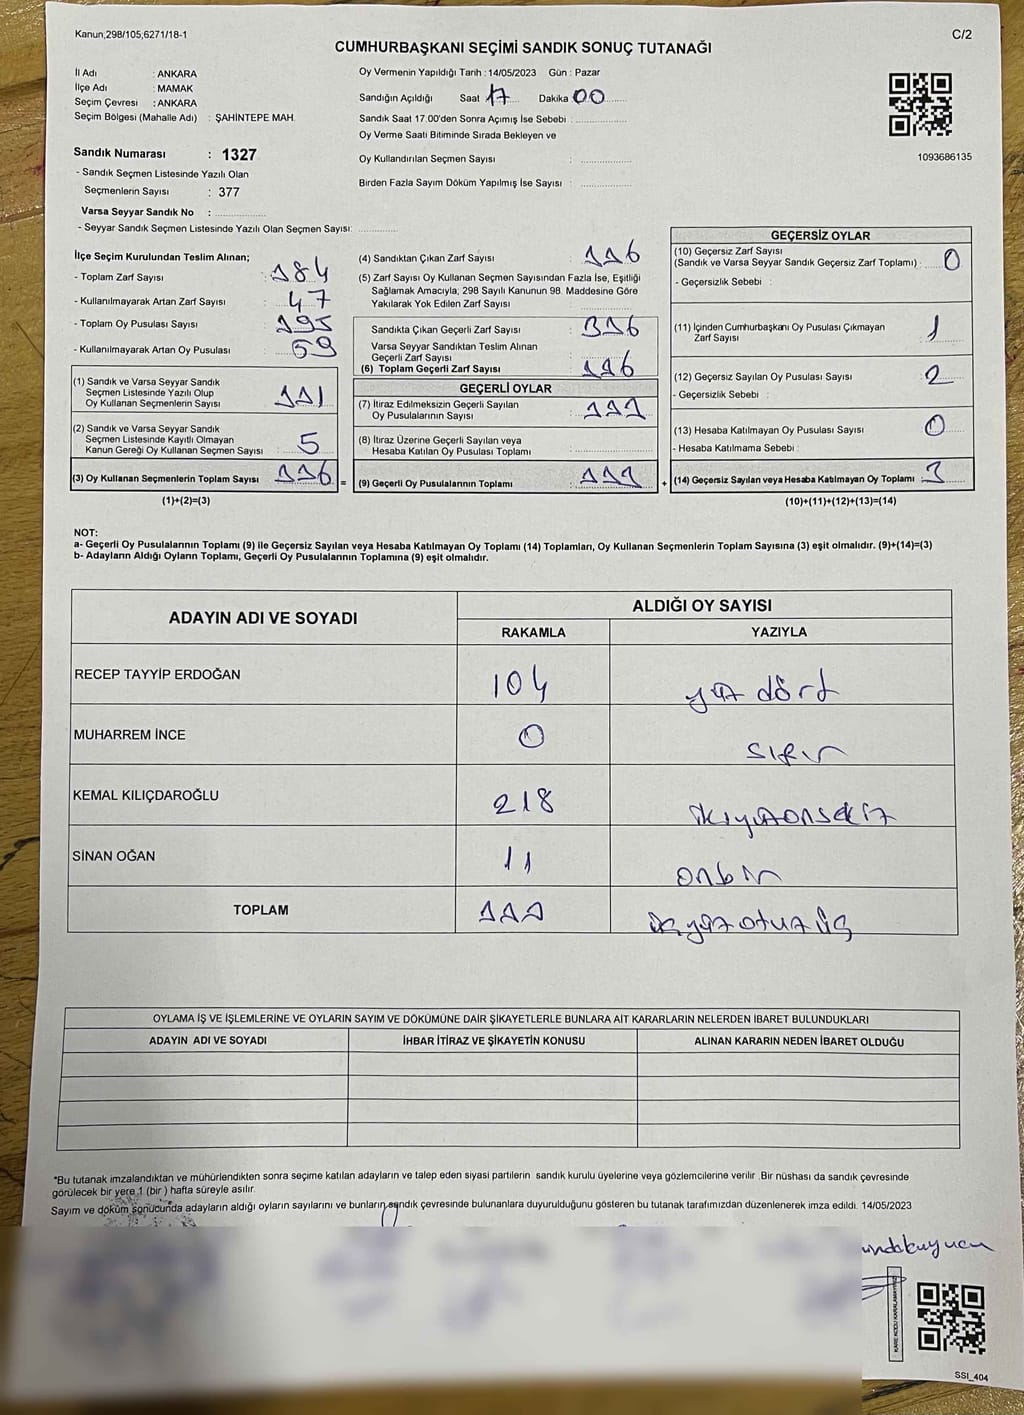 Kanun,298/105,6271/18-1
C/2
CUMHURBAŞKANI SEÇİMİ SANDIK SONUÇ TUTANAĞI
İl Adı : ANKARA
İlçe Adı : MAMAK
Seçim Çevresi : ANKARA
Seçim Bölgesi (Mahalle Adı) : ŞAHİNTEPE MAH.
Sandık Numarası : 1327
- Sandık Seçmen Listesinde Yazılı Olan
Seçmenlerin Sayısı : 377
Varsa Seyyar Sandık No :
- Seyyar Sandık Seçmen Listesinde Yazılı Olan Seçmen Sayısı:
Oy Vermenin Yapıldığı Tarih : 14/05/2023 Gün : Pazar
Sandığın Açıldığı Saat 17 Dakika 00
Sandık Saat 17.00'den Sonra Açımış İse Sebebi :
Oy Verme Saati Bitiminde Sırada Bekleyen ve
Oy Kullandırılan Seçmen Sayısı :
Birden Fazla Sayım Döküm Yapılmış İse Sayısı :
1093686135
İlçe Seçim Kurulundan Teslim Alınan;
- Toplam Zarf Sayısı : 384
- Kullanılmayarak Artan Zarf Sayısı : 47
- Toplam Oy Pusulası Sayısı : 395
- Kullanılmayarak Artan Oy Pusulası : 59
(1) Sandık ve Varsa Seyyar Sandık
Seçmen Listesinde Yazılı Olup
Oy Kullanan Seçmenlerin Sayısı : 331
(2) Sandık ve Varsa Seyyar Sandık
Seçmen Listesinde Kayıtlı Olmayan
Kanun Gereği Oy Kullanan Seçmen Sayısı : 5
(3) Oy Kullanan Seçmenlerin Toplam Sayısı : 336
(1)+(2)=(3)
=
(4) Sandıktan Çıkan Zarf Sayısı : 336
(5) Zarf Sayısı Oy Kullanan Seçmen Sayısından Fazla İse, Eşitliği
Sağlamak Amacıyla; 298 Sayılı Kanunun 98. Maddesine Göre
Yakılarak Yok Edilen Zarf Sayısı :
Sandıkta Çıkan Geçerli Zarf Sayısı : 336
Varsa Seyyar Sandıktan Teslim Alınan
Geçerli Zarf Sayısı :
(6) Toplam Geçerli Zarf Sayısı : 336
GEÇERLİ OYLAR
(7) İtiraz Edilmeksizin Geçerli Sayılan
Oy Pusulalarının Sayısı : 333
(8) İtiraz Üzerine Geçerli Sayılan veya
Hesaba Katılan Oy Pusulası Toplamı :
(9) Geçerli Oy Pusulalarının Toplamı : 333
+
GEÇERSİZ OYLAR
(10) Geçersiz Zarf Sayısı
(Sandık ve Varsa Seyyar Sandık Geçersiz Zarf Toplamı) : 0
- Geçersizlik Sebebi :
(11) İçinden Cumhurbaşkanı Oy Pusulası Çıkmayan
Zarf Sayısı : 1
(12) Geçersiz Sayılan Oy Pusulası Sayısı : 2
- Geçersizlik Sebebi :
(13) Hesaba Katılmayan Oy Pusulası Sayısı : 0
- Hesaba Katılmama Sebebi :
(14) Geçersiz Sayılan veya Hesaba Katılmayan Oy Toplamı : 3
(10)+(11)+(12)+(13)=(14)
NOT:
a- Geçerli Oy Pusulalarının Toplamı (9) ile Geçersiz Sayılan veya Hesaba Katılmayan Oy Toplamı (14) Toplamları, Oy Kullanan Seçmenlerin Toplam Sayısına (3) eşit olmalıdır. (9)+(14)=(3)
b- Adayların Aldığı Oyların Toplamı, Geçerli Oy Pusulalarının Toplamına (9) eşit olmalıdır.
ADAYIN ADI VE SOYADI
ALDIĞI OY SAYISI
RAKAMLA YAZIYLA
RECEP TAYYİP ERDOĞAN 104 yüz dört
MUHARREM İNCE 0 sıfır
KEMAL KILIÇDAROĞLU 218 ikiyüzonsekiz
SİNAN OĞAN 11 onbir
TOPLAM 333 üçyüzotuzüç
OYLAMA İŞ VE İŞLEMLERİNE VE OYLARIN SAYIM VE DÖKÜMÜNE DAİR ŞİKAYETLERLE BUNLARA AİT KARARLARIN NELERDEN İBARET BULUNDUKLARI
ADAYIN ADI VE SOYADI İHBAR İTİRAZ VE ŞİKAYETİN KONUSU ALINAN KARARIN NEDEN İBARET OLDUĞU
*Bu tutanak imzalandıktan ve mühürlendikten sonra seçime katılan adayların ve talep eden siyasi partilerin sandık kurulu üyelerine veya gözlemcilerine verilir .Bir nüshası da sandık çevresinde
görülecek bir yere 1 (bir ) hafta süreyle asılır.
Sayım ve döküm sonucunda adayların aldığı oyların sayılarını ve bunların sandık çevresinde bulunanlara duyurulduğunu gösteren bu tutanak tarafımızdan düzenlenerek imza edildi. 14/05/2023
KARE KODU KARALAMAYINIZ
SSI_404